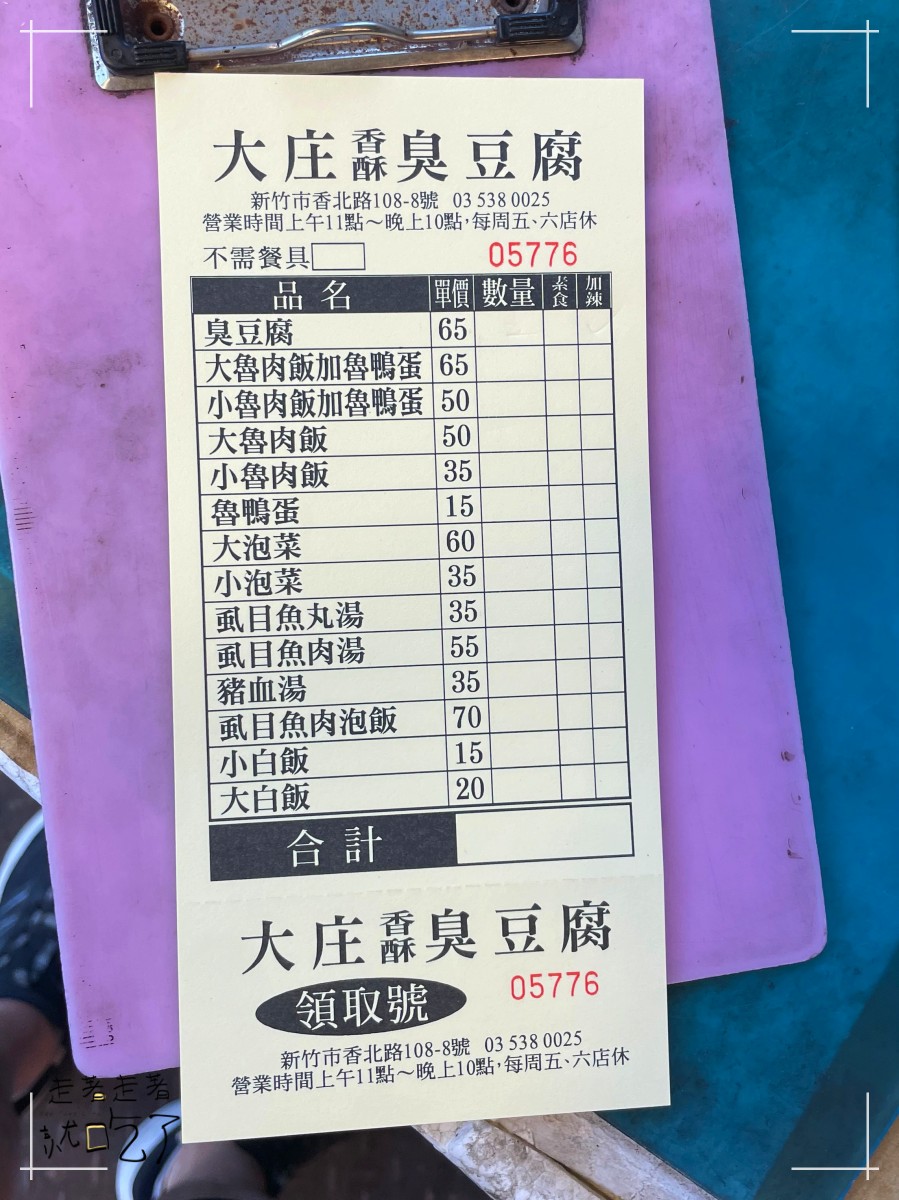 大庄香酥臭豆腐
新竹市香北路108-8號 03 538 0025
營業時間上午11點～晚上10點,每周五、六店休
不需餐具 05776
品名 單價 數量 素食 加辣
臭豆腐 65
大魯肉飯加魯鴨蛋 65
小魯肉飯加魯鴨蛋 50
大魯肉飯 50
小魯肉飯 35
魯鴨蛋 15
大泡菜 60
小泡菜 35
虱目魚丸湯 35
虱目魚肉湯 55
豬血湯 35
虱目魚肉泡飯 70
小白飯 15
大白飯 20
合計
大庄香酥臭豆腐
領取號 05776
新竹市香北路108-8號 03 538 0025
營業時間上午11點～晚上10點,每周五、六店休
走著走著
就口吃了